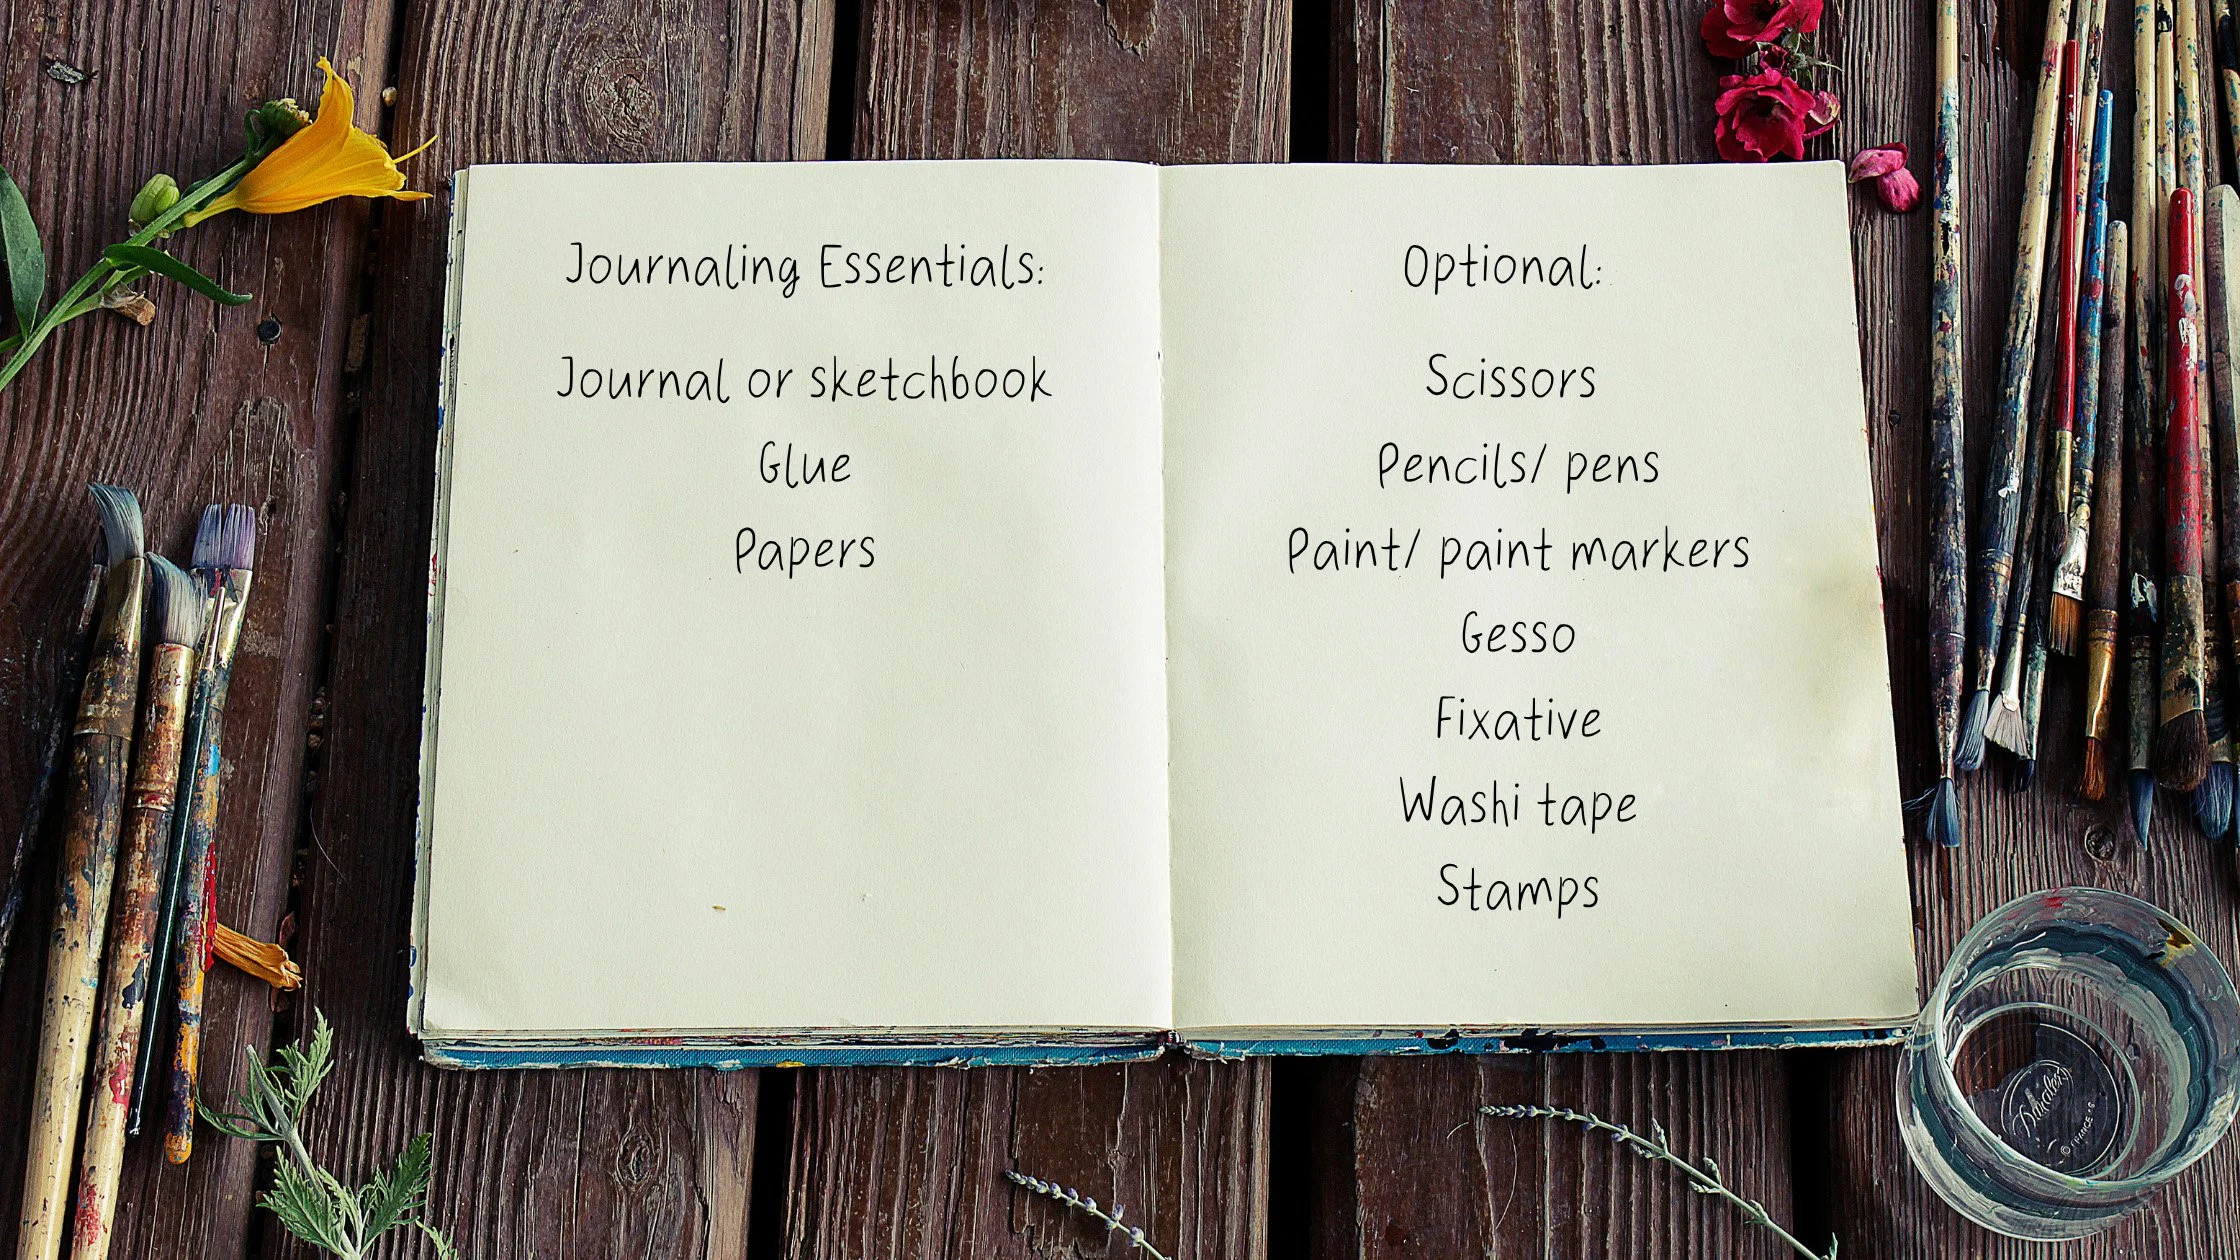 Journaling Essentials:
Journal or sketchbook
Glue
Papers
Optional:
Scissors
Pencils/ pens
Paint/ paint markers
Gesso
Fixative
Washi tape
Stamps
FRANCE